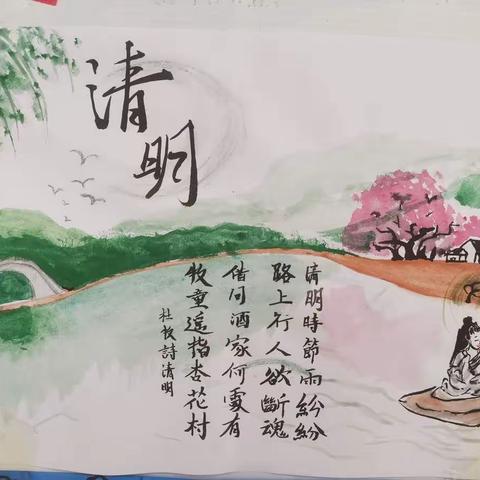 清明
清明時節雨紛紛
路上行人欲斷魂
借问酒家何處有
牧童遥指杏花村
杜牧詩清明